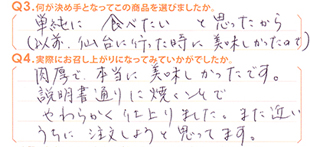 Q3.何が決め手となってこの商品を選びましたか。
単純に 食べたい と思ったから
(以前、仙台に行った時に美味しかったので)
Q4.実際にお召し上がりになってみていかがでしたか。
肉厚で、本当に美味しかったです。
説明書通りに焼くことで
やわらかく仕上りました。また近い
うちに注文しようと思ってます。